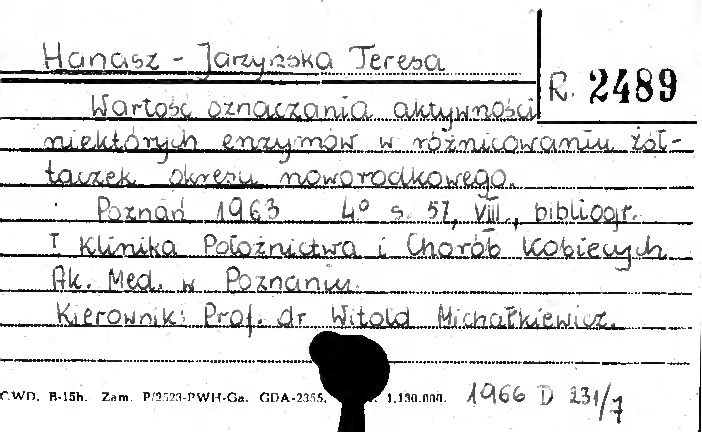 Hanasz - Jarzyńska Teresa
R. 2489
Wartość oznaczania aktywności
niektórych enzymów w różnicowaniu żół-
taczek okresu noworodkowego.
Poznań 1963 4° s. 57, VIII., bibliogr.
I Klinika Położnictwa i Chorób Kobiecych
Ak. Med. w Poznaniu.
Kierownik: Prof. dr Witold Michałkiewicz.
CWD. B-15h. Zam. P/2523-PWH-Ga. GDA-2355. 1.130.000. 1966 D 231/7